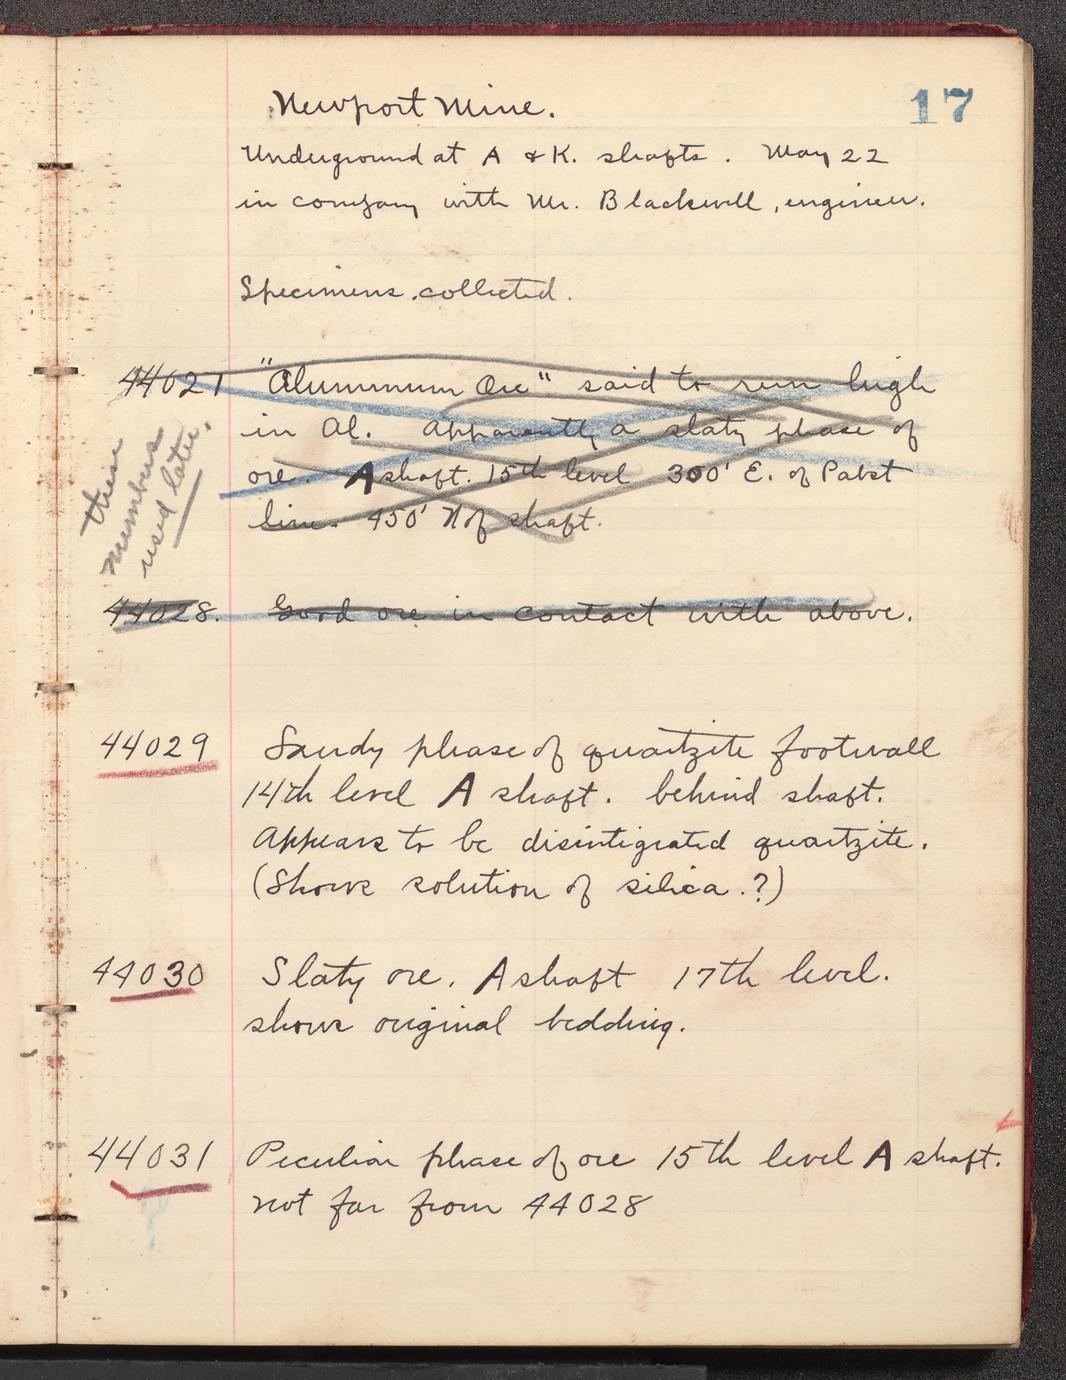 17
Newport Mine.
Underground at A & K. shafts. May 22
in company with Mr. Blackwell, engineer.
Specimens collected.
44027 "Aluminum Ore" said to run high
in Al. Apparently a slaty phase of
ore. A shaft. 15th level 300' E. of Pabst
line. 450' N of shaft.
these
numbers
used later.
44028. Good ore in contact with above.
44029 Sandy phase of quartzite footwall
14th level A shaft. behind shaft.
Appears to be disintigrated quartzite.
(Shows solution of silica.?)
44030 Slaty ore. A shaft 17th level.
shows original bedding.
44031 Peculiar phase of ore 15th level A shaft.
not far from 44028
?